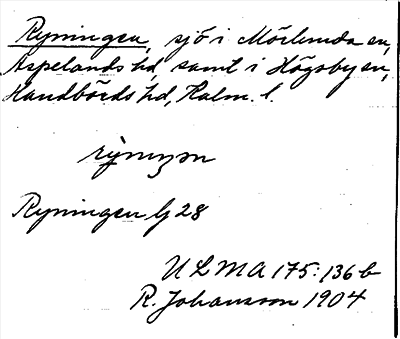 Ryningen, sjö i Mörlunda sn,
Aspelands hd, samt i Högsby sn,
Handbörds hd, Kalm. l.
Ryningen Gj 28
ULMA 175:136 b
R. Johansson 1904